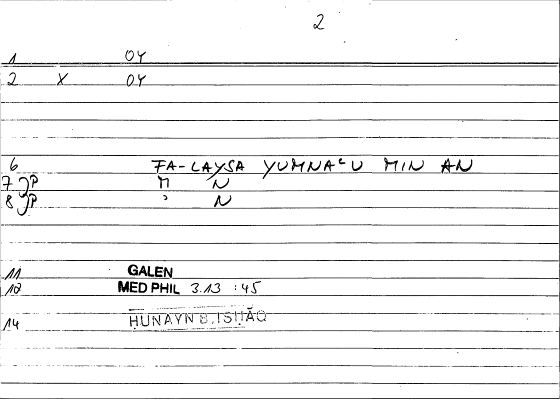 2
1 OY
2 X OY
6 FA-LAYSA YUMNAʿU MIN AN
7 JP M N
8 JP ʾ N
11 GALEN
12 MED PHIL 3.13 :45
14 ḤUNAYN B. ISḤĀQ